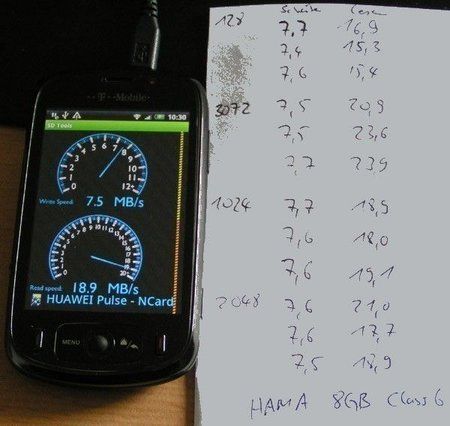 T-Mobile
10:30
SD Tools
0 1 2 3 4 5 6 7 8 9 10 11 12+
Write Speed: 7.5 MB/s
Read speed: 18.9 MB/s
HUAWEI Pulse - NCard
MENU
128 7,7 16,9
7,4 15,3
7,6 15,4
3072 7,5 20,9
7,5 23,6
7,7 23,9
1024 7,7 18,9
7,6 18,0
7,6 19,1
2048 7,6 21,0
7,6 17,7
7,5 18,9
HAMA 8GB Class 6